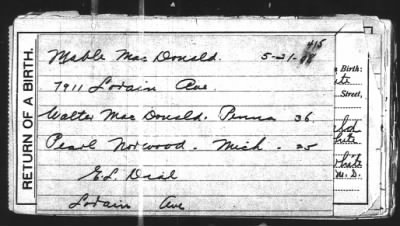 RETURN OF A BIRTH.
415
Mable MacDonald. 5-21-
7911 Lorain Ave.
Walter MacDonald. Penna 36.
Pearl Norwood. Mich. 25
E.L. Dial
Lorain Ave
Birth:
Street,
M. D.